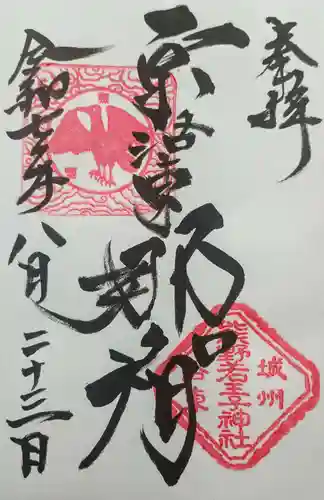 奉拝
京洛東
那智
令和七年
八月二十三日
城州
熊野若王子神社
洛東